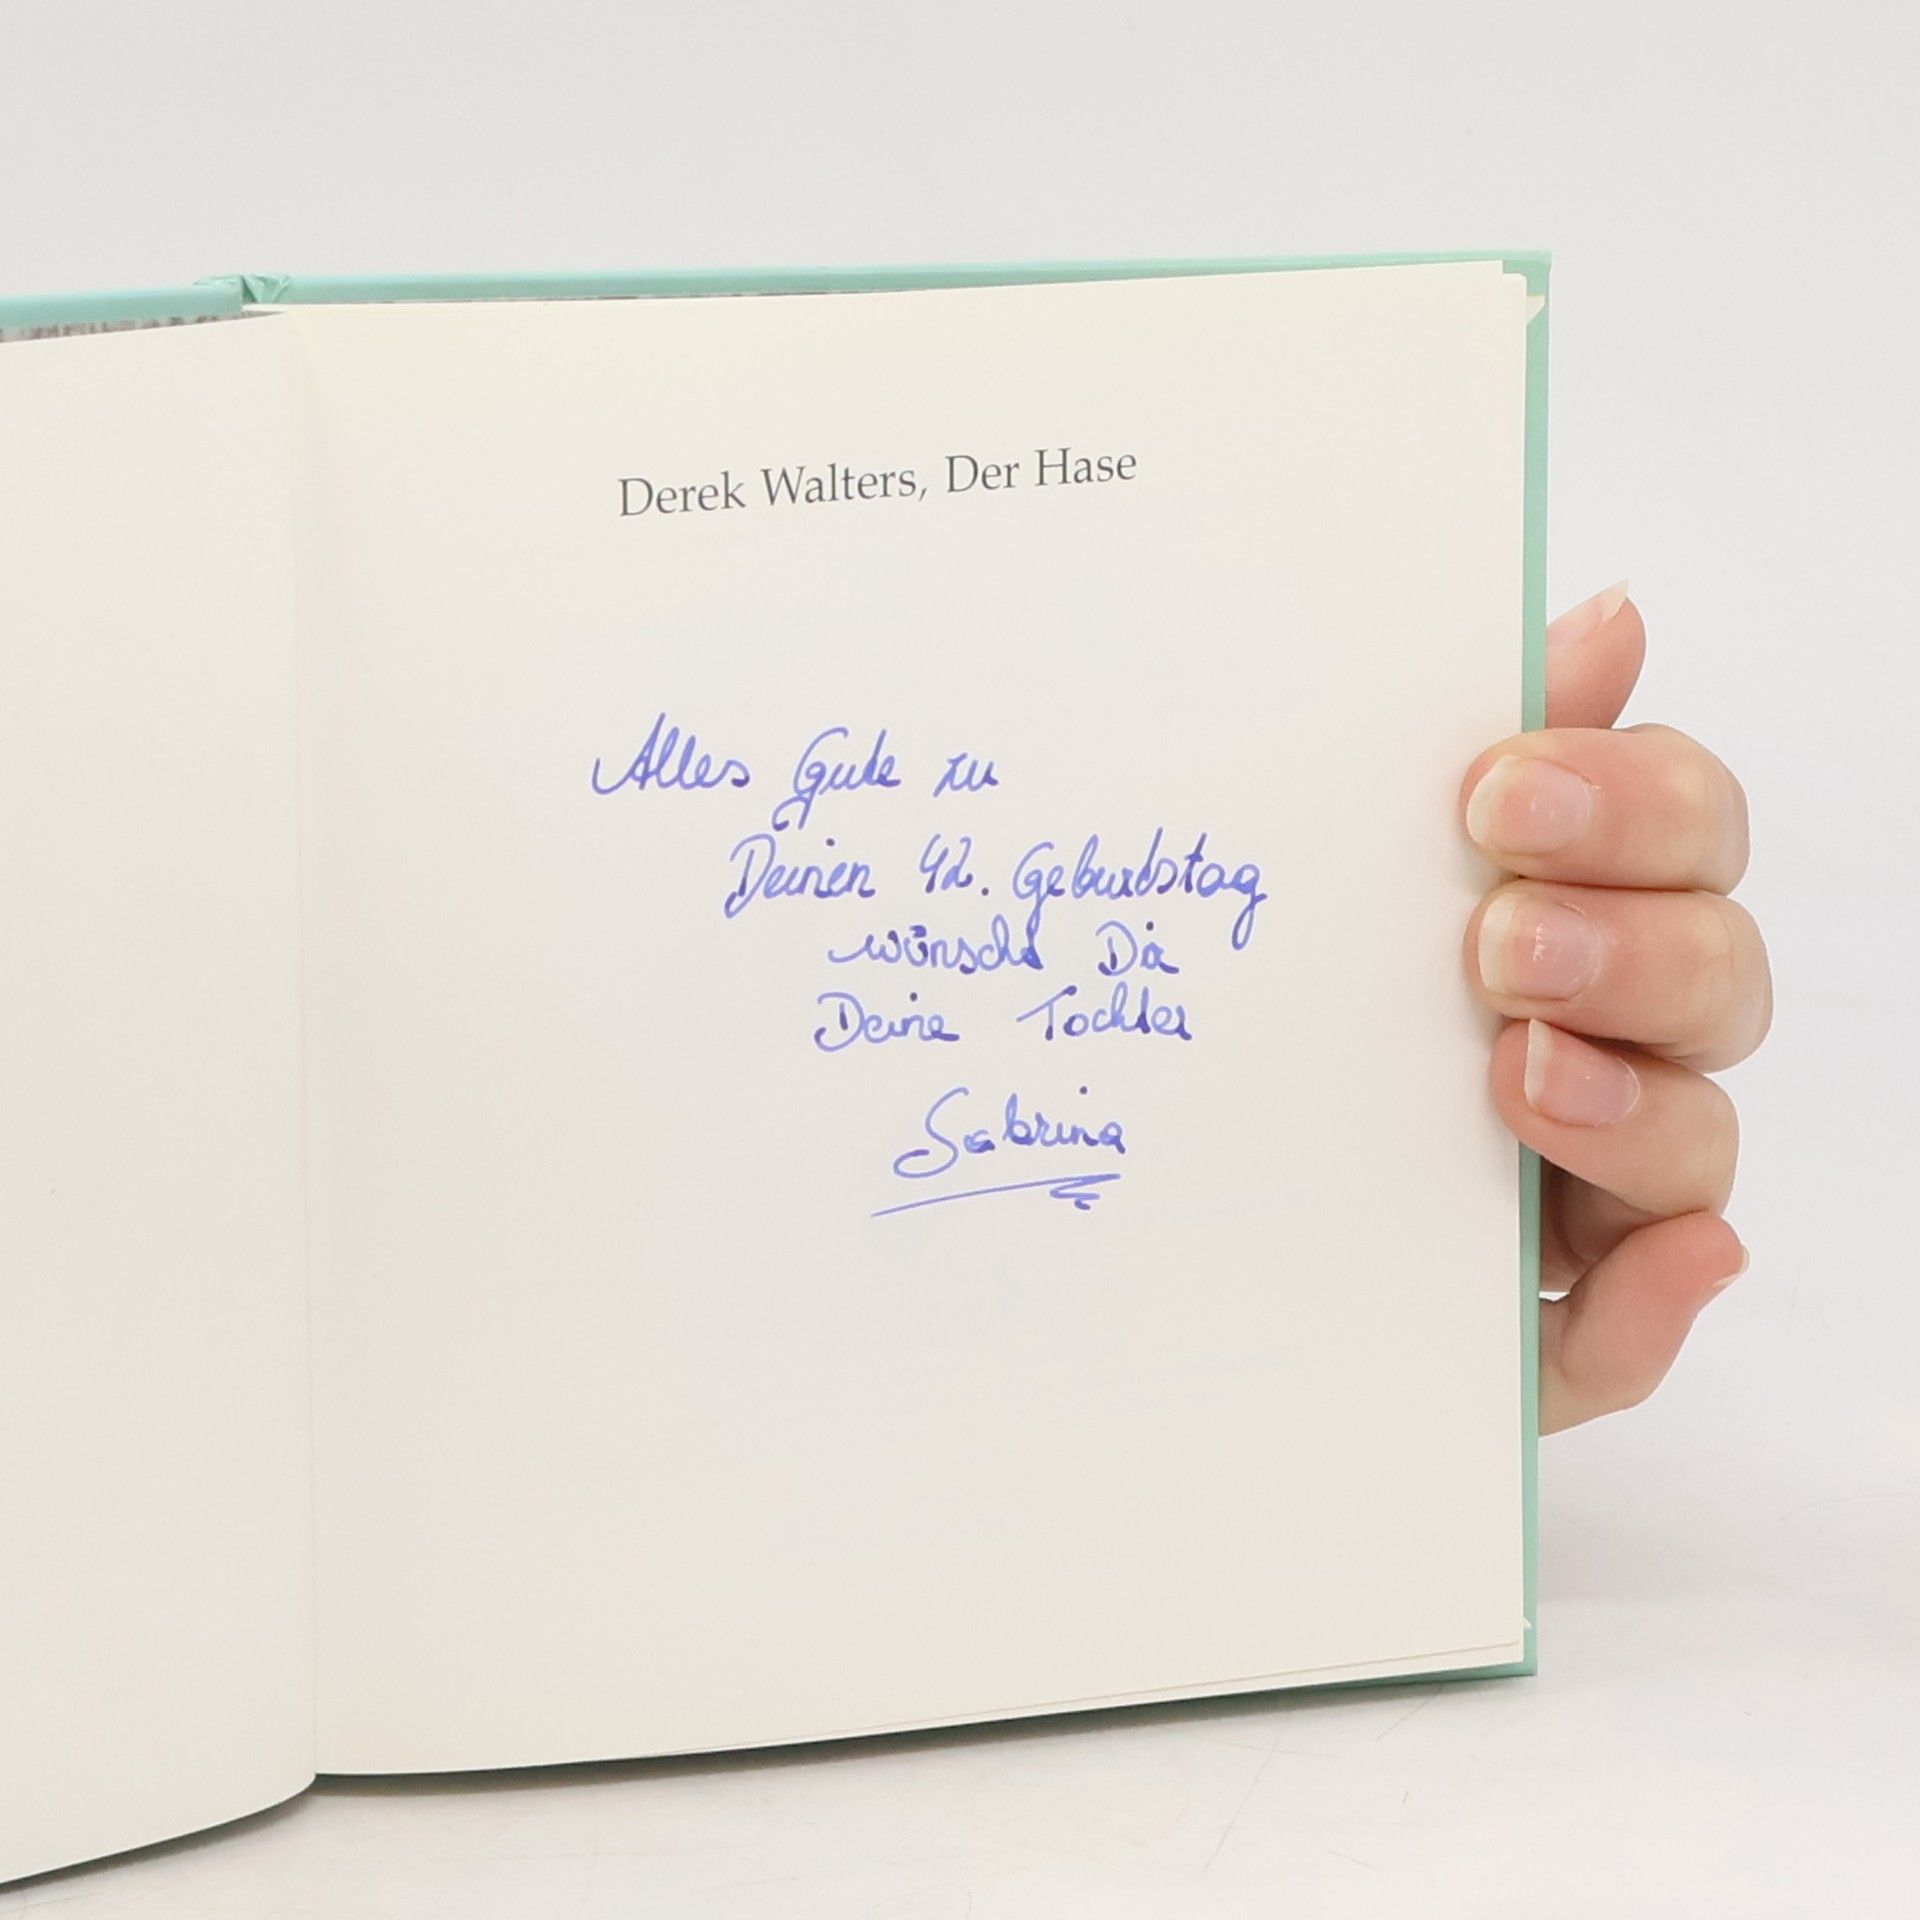 Derek Walters, Der Hase
Alles Gute zu
Deinen 42. Geburtstag
wünscht Dir
Deine Tochter
Sabrina